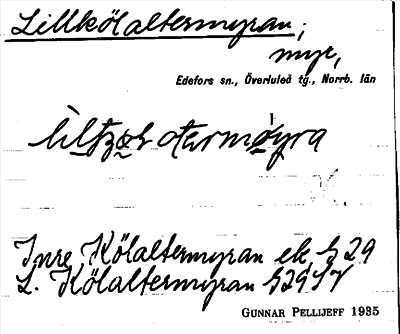 Lillkölaltermyran,
myr,
Edefors sn., Överluleå tg., Norrb. län
Inre Kölaltermyran ek. 29
L. Kölaltermyran 29 SV
GUNNAR PELLIJEFF 1935